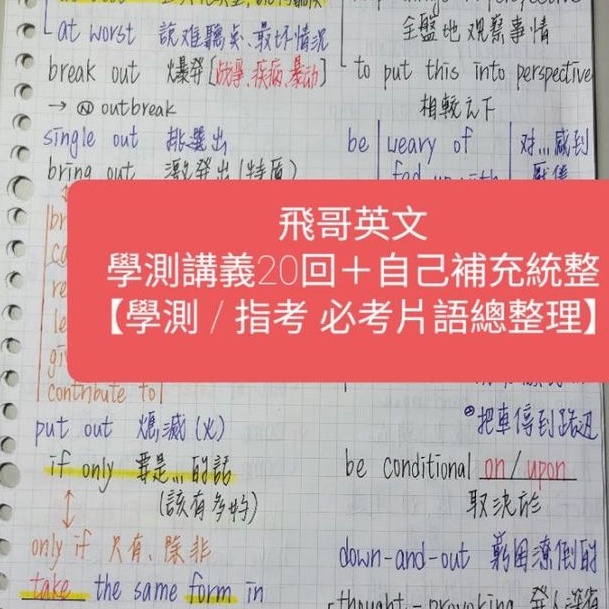 at worst 說难聽点、最坏情况
break out 爆發[战爭、疾病、暴动]
→ Ⓝ outbreak
single out 挑選出
bring out 激發出(特質)
contribute to
put out 熄滅(火)
if only 要是...的話
(該有多好)
only if 只有、除非
take the same form in
全盤地观察事情
to put this into perspective
相較之下
be weary of 对...感到
fed up with 厭倦
飛哥英文
學測講義20回＋自己補充統整
【學測 / 指考 必考片語總整理】
把車停到路边
be conditional on / upon
取決於
down-and-out 窮困潦倒的
thought-provoking 發人深省